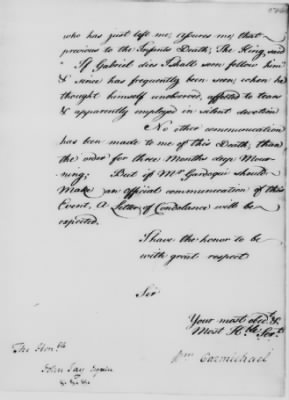 who has just left me, assures me, that
previous to the Infants Death; The King said
"If Gabriel dies I shall soon follow him"
& since has frequently been seen, when he
thought himself unobserved, affected to tears
& apparently employed in silent devotion
No other communication
has been made to me of this Death, than
the order for three Months deep Mour-
ning; But if Mr Gardoqui should
Make an official communication of this
Event, A Letter of Condolance will be
expected.
I have the honor to be
with great respect
Sir
Your most obedt. &
Most Hble Servt.
Wm Carmichael
The Honble
John Jay Esquire
&c &c &c